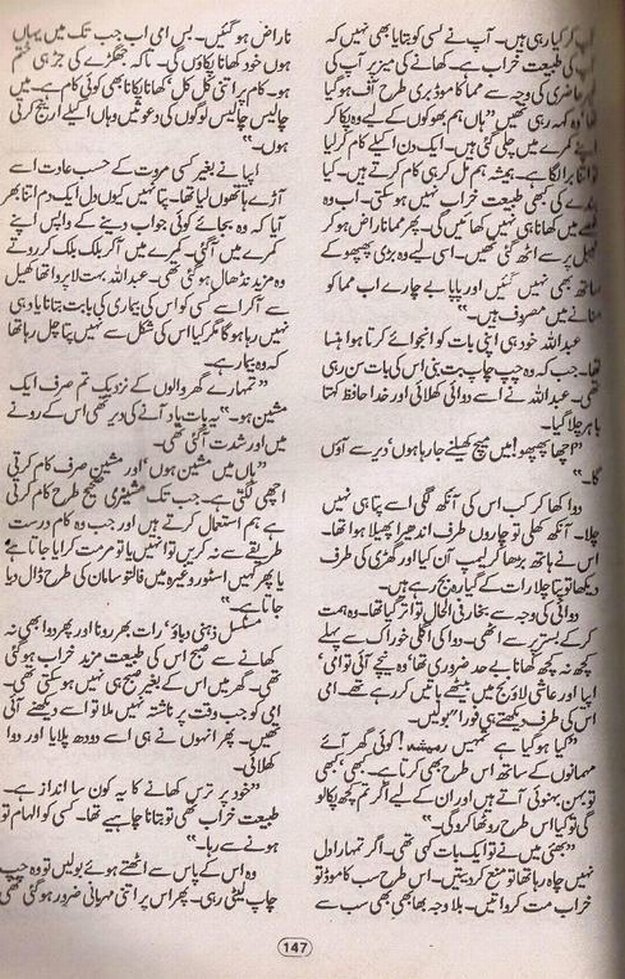 کر کیا رہی ہیں۔ آپ نے کسی کو بتایا بھی نہیں کہ
کی طبیعت خراب ہے۔ کھانے کی میز پر آپ کی
حاضری کی وجہ سے مما کا موڈ بری طرح آف ہو گیا
وہ کہہ رہی تھیں ”ہاں ہم بھوکوں کے لیے وہ پکا کر
اپنے کمرے میں چلی گئی ہیں۔ ایک دن اکیلے کام کر لیا
تو اتنا برا لگا ہے۔ ہمیشہ ہم مل کر ہی کام کرتے ہیں۔ کیا
بندے کی کبھی طبیعت خراب نہیں ہو سکتی۔ اب وہ
میں کھانا ہی نہیں کھائیں گی۔ پھر مما ناراض ہو کر
ٹیبل پر سے اٹھ گئی تھیں۔ اسی لیے وہ بڑی پھپھو کے
ساتھ بھی نہیں گئیں اور پاپا بے چارے اب مما کو
منانے میں مصروف ہیں۔“
عبداللہ خود ہی اپنی بات کو انجوائے کرتا ہوا ہنسا
تھا۔ جب کہ وہ چپ چاپ بت بنی اس کی بات سن رہی
تھی۔ عبداللہ نے اسے دوائی کھلائی اور خدا حافظ کہتا
باہر چلا گیا۔
”اچھا پھپھو! میں میچ کھیلنے جا رہا ہوں، دیر سے آؤں
گا۔“
دوا کھا کر کب اس کی آنکھ لگی اسے پتا ہی نہیں
چلا۔ آنکھ کھلی تو چاروں طرف اندھیرا پھیلا ہوا تھا۔
اس نے ہاتھ بڑھا کر لیمپ آن کیا اور گھڑی کی طرف
دیکھا تو پتا چلا رات کے گیارہ بج رہے ہیں۔
دوائی کی وجہ سے بخار فی الحال تو اتر گیا تھا۔ وہ ہمت
کر کے بستر سے اٹھی۔ دوا کی اگلی خوراک سے پہلے
کچھ نہ کچھ کھانا بے حد ضروری تھا، وہ نیچے آئی تو امی،
اپیا اور عاشی لاؤنج میں بیٹھے باتیں کر رہے تھے۔ امی
اس کی طرف دیکھتے ہی فوراً بولیں۔
”کیا ہو گیا ہے تمہیں رمیشہ! کوئی گھر آئے
مہمانوں کے ساتھ اس طرح بھی کرتا ہے۔ کبھی کبھی
تو بہن بہنوئی آتے ہیں اور ان کے لیے اگر تم کچھ پکا لو
گی تو کیا اس طرح روٹھا کرو گی۔“
”بھئی میں نے تو ایک بات کہی تھی۔ اگر تمہارا دل
نہیں چاہ رہا تھا تو منع کر دیتیں۔ اس طرح سب کا موڈ تو
خراب مت کرواتیں۔ بلا وجہ بھابھی بھی سب سے
ناراض ہو گئیں۔ بس امی اب جب تک میں یہاں
ہوں خود کھانا پکاؤں گی۔ تاکہ جھگڑے کی جڑ ہی ختم
ہو۔ کام پر اتنی کل کل، کھانا پکانا بھی کوئی کام ہے۔ میں
چالیس چالیس لوگوں کی دعوتیں وہاں اکیلے ارینج کرتی
ہوں۔“
اپیا نے بغیر کسی مروت کے حسب عادت اسے
آڑے ہاتھوں لیا تھا۔ پتا نہیں کیوں دل ایک دم اتنا بھر
آیا کہ وہ بجائے کوئی جواب دینے کے واپس اپنے
کمرے میں آ گئی۔ کمرے میں آ کر بلک بلک کر روتے
وہ مزید نڈھال ہو گئی تھی۔ عبداللہ بہت لاپروا تھا کھیل
سے آ کر اسے کسی کو اس کی بیماری کی بابت بتانا یاد ہی
نہیں رہا ہو گا مگر کیا اس کی شکل سے نہیں پتا چل رہا تھا
کہ وہ بیمار ہے۔
”تمہارے گھر والوں کے نزدیک تم صرف ایک
مشین ہو۔“ یہ بات یاد آنے کی دیر تھی اس کے رونے
میں اور شدت آ گئی تھی۔
”ہاں میں مشین ہوں، اور مشین صرف کام کرتی
اچھی لگتی ہے۔ جب تک مشینری صحیح طرح کام کرتی
ہے ہم استعمال کرتے ہیں اور جب وہ کام درست
طریقے سے نہ کریں تو انہیں یا تو مرمت کرایا جاتا ہے
یا پھر کہیں اسٹور وغیرہ میں فالتو سامان کی طرح ڈال دیا
جاتا ہے۔“
مسلسل ذہنی دباؤ، رات بھر رونا اور پھر دوا بھی نہ
کھانے سے صبح اس کی طبیعت مزید خراب ہو گئی
تھی۔ گھر میں اس کے بغیر صبح ہی نہیں ہو سکتی تھی۔
امی کو جب وقت پر ناشتہ نہیں ملا تو اسے دیکھنے آئی
تھیں۔ پھر انہوں نے ہی اسے دودھ پلایا اور دوا
کھلائی۔
”خود پر ترس کھانے کا یہ کون سا انداز ہے۔
طبیعت خراب تھی تو بتانا چاہیے تھا۔ کسی کو الہام تو
ہونے سے رہا۔“
وہ اس کے پاس سے اٹھتے ہوئے بولیں تو وہ چپ
چاپ لیٹی رہی۔ پھر اس پر اتنی مہربانی ضرور ہو گئی تھی
147